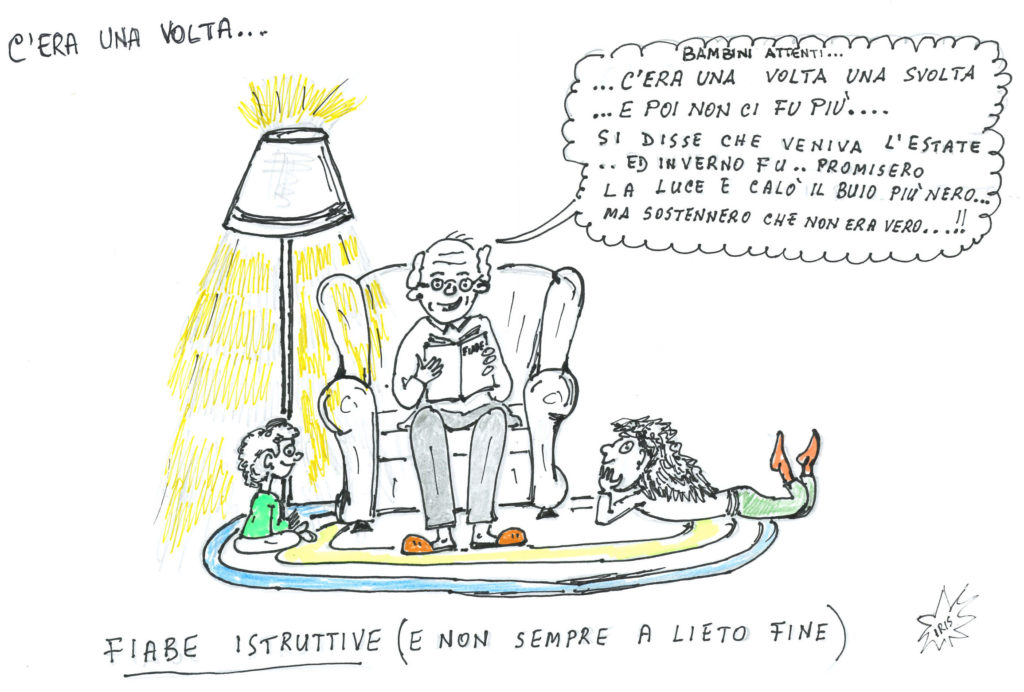 C'ERA UNA VOLTA...
BAMBINI ATTENTI...
...C'ERA UNA VOLTA UNA SVOLTA
...E POI NON CI FU PIÙ....
SI DISSE CHE VENIVA L'ESTATE
.. ED INVERNO FU.. PROMISERO
LA LUCE E CALÒ IL BUIO PIÙ NERO...
MA SOSTENNERO CHE NON ERA VERO...!!
FIABE
FIABE ISTRUTTIVE (E NON SEMPRE A LIETO FINE)
IRIS